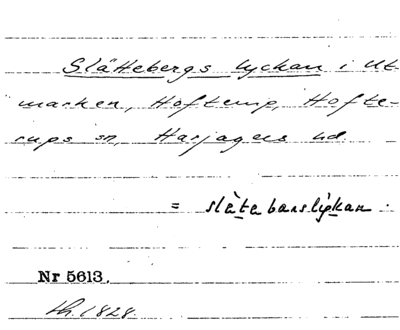 Slättebergs lyckan i Ut-
marken, Hofterup, Hofte-
rups sn, Harjagers hd.
= slätabarslykan.
Nr 5613.
Lh. 1828.